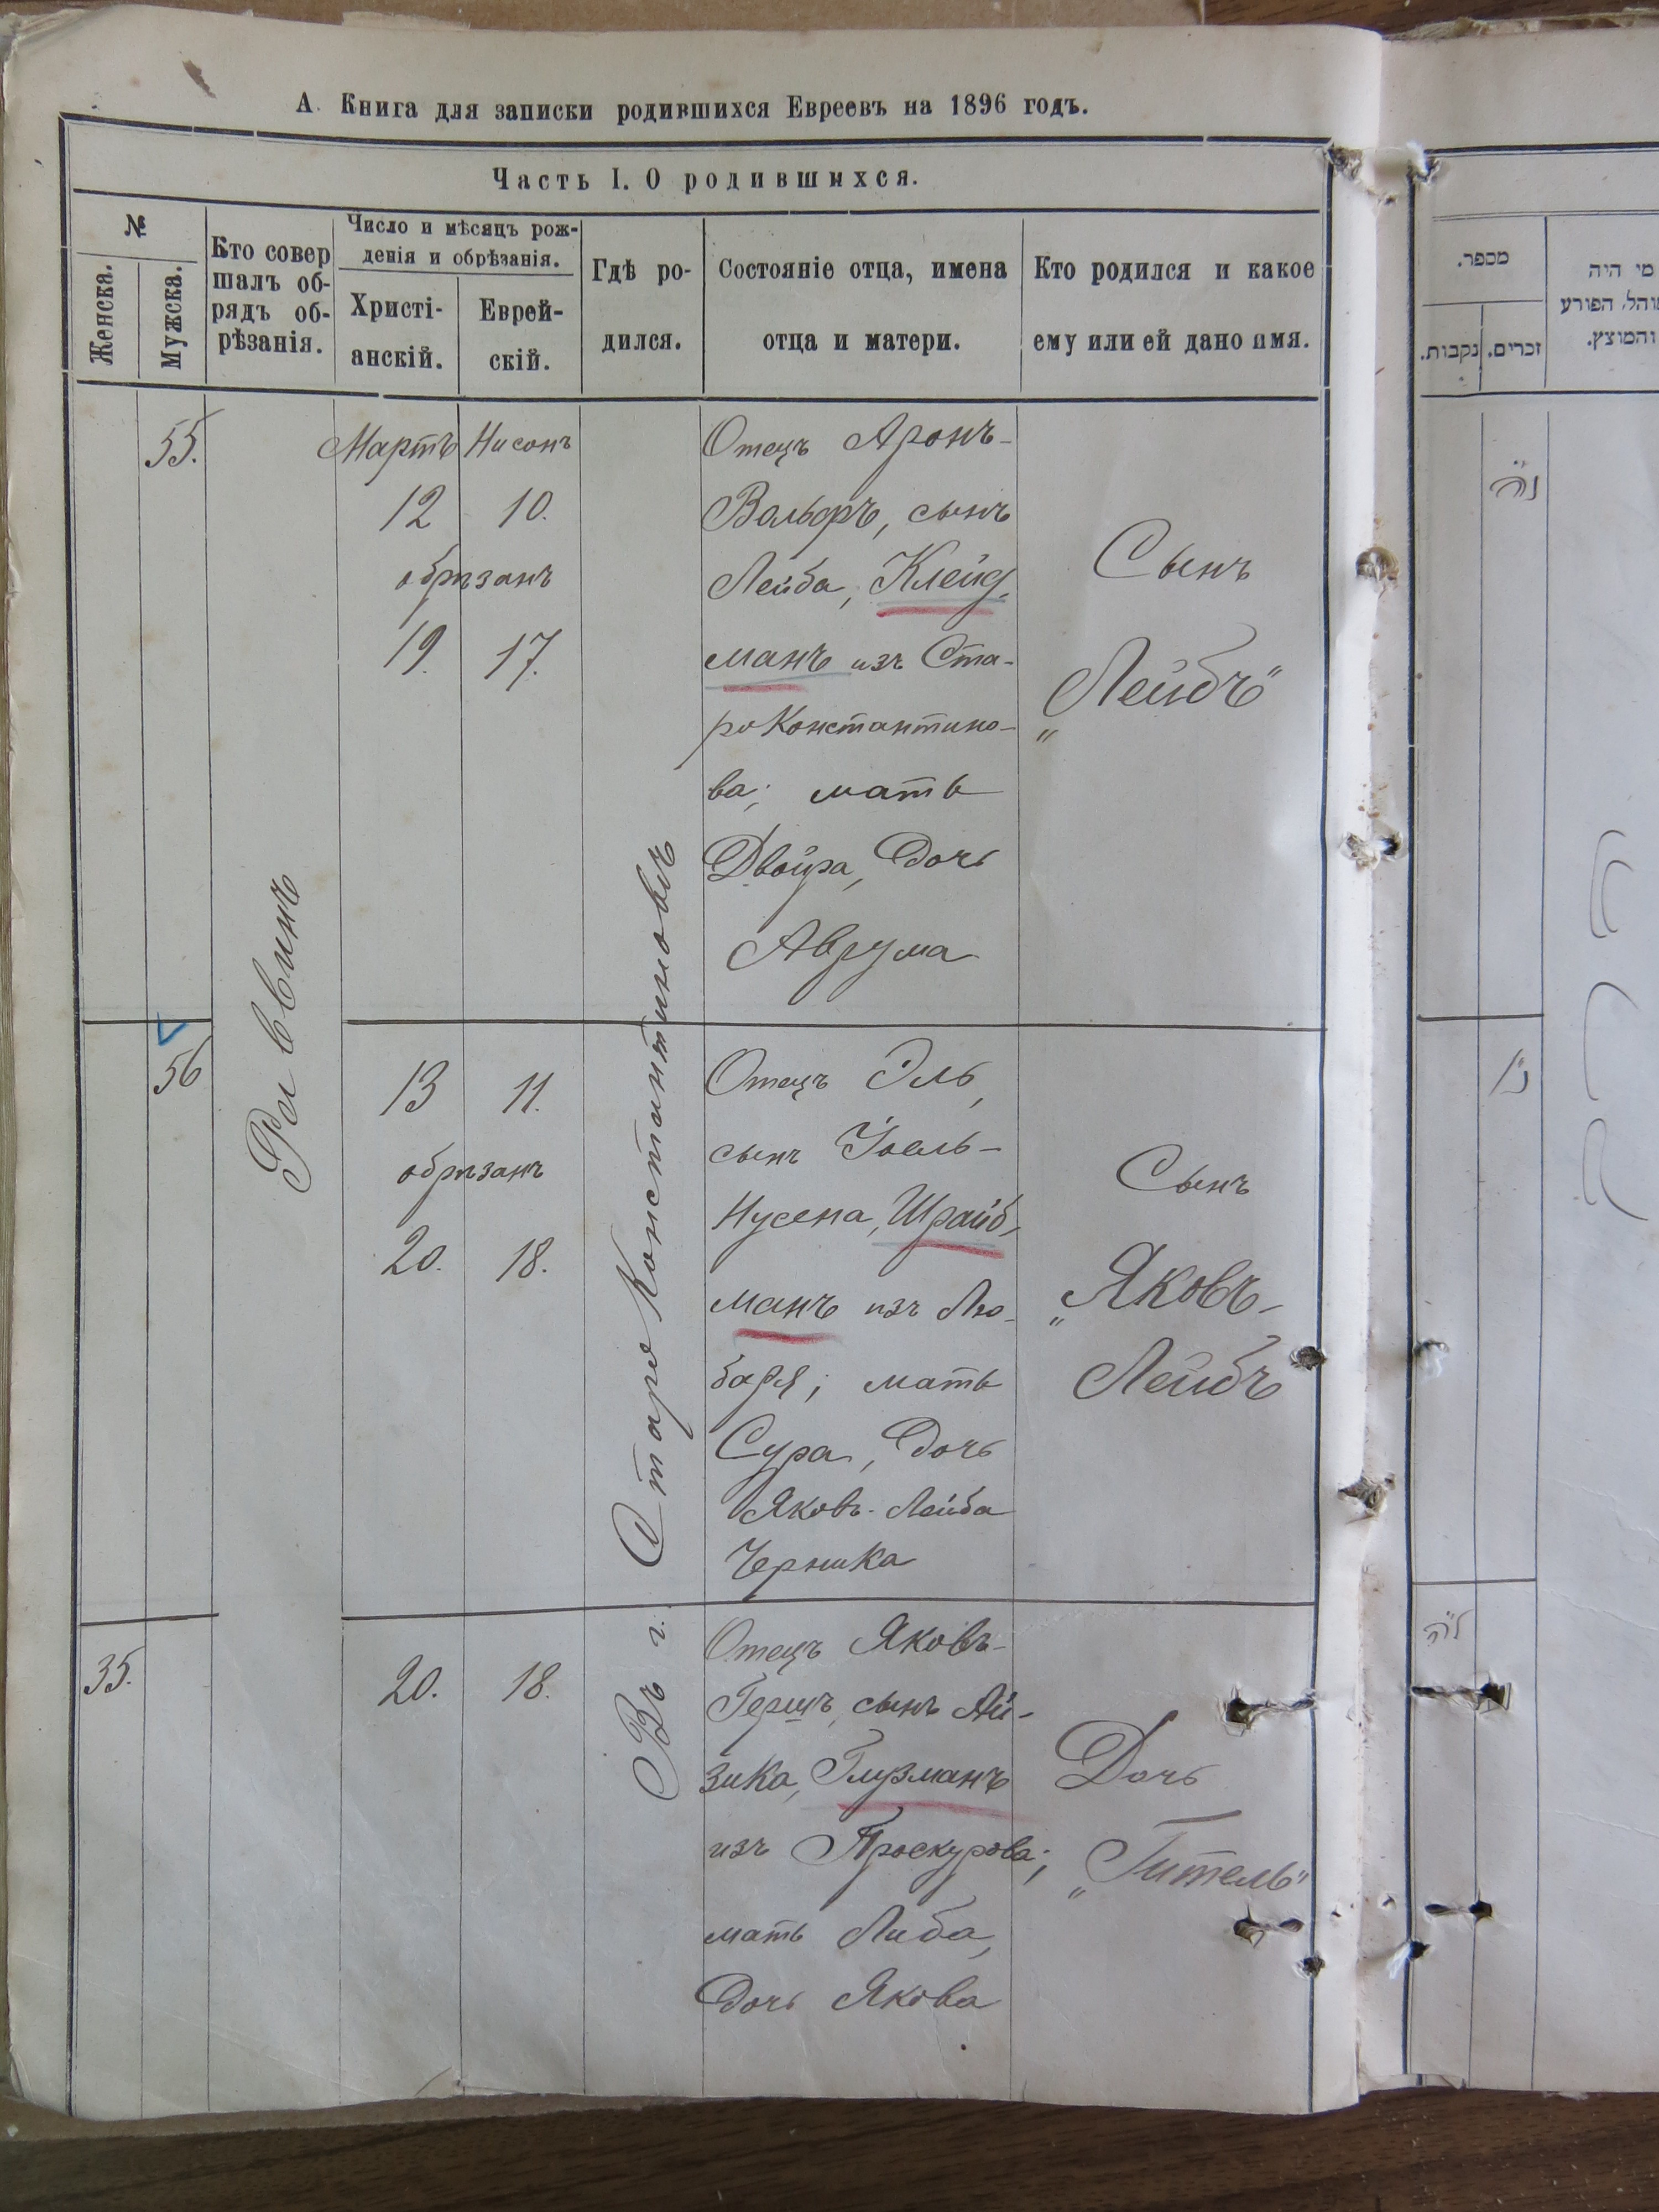 А. Книга для записки родившихся Евреевъ на 1896 годъ.
Часть I. О родившихся.
№
Женска.
Мужска.
Кто совер
шалъ об-
рядъ об-
рѣзанія.
Число и мѣсяцъ рож-
денія и обрѣзанія.
Христі-
анскій.
Еврей-
скій.
Гдѣ ро-
дился.
Состояніе отца, имена
отца и матери.
Кто родился и какое
ему или ей дано имя.
55.
Мартъ Нисонъ
12 10.
обрѣзанъ
19. 17.
Отецъ Аронъ-
Вольфъ, сынъ
Лейба, Клейд-
манъ изъ Ста-
роКонстантино-
ва; мать
Двойра, дочь
Аврума
Сынъ
„Лейбъ“
Раввинъ
Въ г. СтароКонстантиновѣ
56
13 11.
обрѣзанъ
20. 18.
Отецъ Эль,
сынъ Іоель-
Нусена, Шрайб-
манъ изъ Лю-
баря; мать
Сура, дочь
Яковъ-Лейба
Черника
Сынъ
„Яковъ-
Лейбъ
35.
20. 18.
Отецъ Яковъ-
Гершъ, сынъ Ай-
зика, Глузманъ
изъ Проскурова;
мать Либа,
дочь Якова
Дочь
„Гитель“
מספר.
נקבות.
זכרים.
מי היה
המוהל, הפורע
והמוצץ.
נ״ה
נ״ו
ל״ה